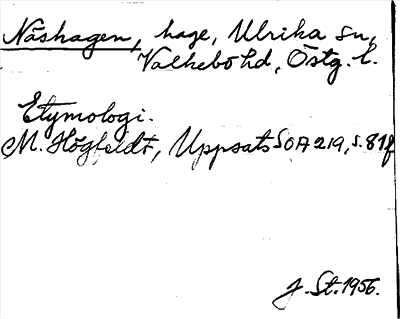 Näshagen, hage, Ulrika sn,
Valkebo hd, Östg. l.
Etymologi.
M. Högfeldt, Uppsats SOA 219, s. 81f
J. St. 1956.